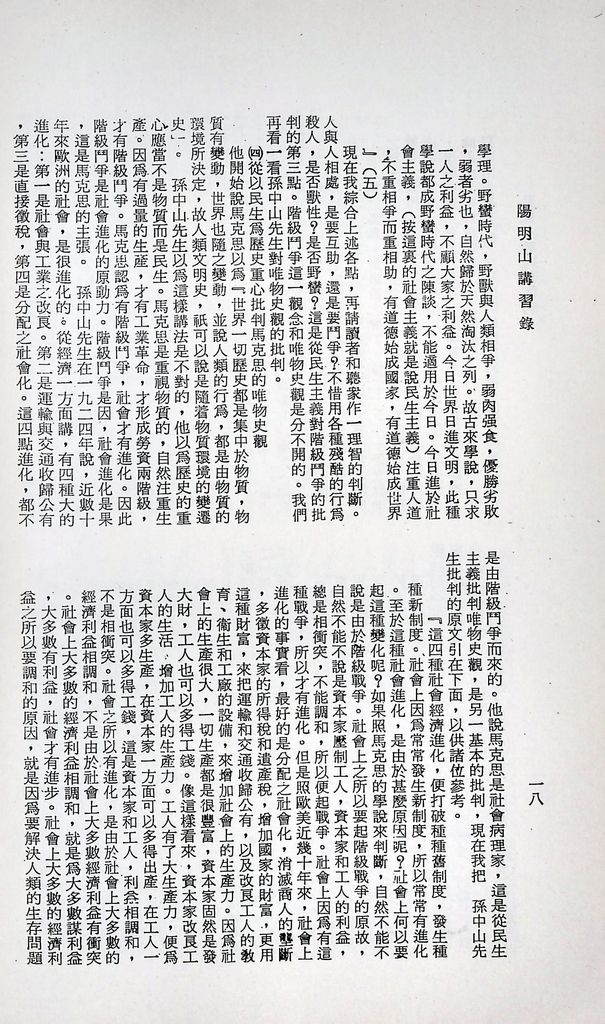 陽明山講習錄
學理。野蠻時代，野獸與人類相爭，弱肉强食，優勝劣敗
，弱者劣也，自然歸於天然淘汰之列。故古來學說，只求
一人之利益，不顧大家之利益。今日世界日進文明，此種
學說都成野蠻時代之陳談，不能適用於今日。今日進於社
會主義，（按這裏的社會主義就是說民生主義）注重人道
，不重相爭而重相助，有道德始成國家，有道德始成世界
』（五）
現在我綜合上述各點，再請讀者和聽衆作一理智的判斷。
人與人相處，是要互助，還是要鬥爭？不惜用各種殘酷的行爲
殺人，是否獸性？是否野蠻？這是從民生主義對階級鬥爭的批
判的第三點。階級鬥爭這一觀念和唯物史觀是分不開的。我們
再看一看孫中山先生對唯物史觀的批判。
㈣從以民生爲歷史重心批判馬克思的唯物史觀
他開始說馬克思以爲『世界一切歷史都是集中於物質，物
質有變動，世界也隨之變動，並說人類的行爲，都是由物質的
環境所決定，故人類文明史，祇可以說是隨着物質環境的變遷
史』。　孫中山先生以爲這樣講法是不對的，他以爲歷史的重
心應當不是物質而是民生。馬克思是重視物質的，自然注重生
產。因爲有過量的生產，才有工業革命，才形成勞資兩階級，
才有階級鬥爭。馬克思認爲有階級鬥爭，社會才有進化。因此
階級鬥爭是社會進化的原動力。階級鬥爭是因，社會進化是果
，這是馬克思的主張。　孫中山先生在一九二四年說，近數十
年來歐洲的社會，是很進化的。從經濟一方面講，有四種大的
進化：第一是社會與工業之改良。第二是運輸與交通收歸公有
，第三是直接徵稅，第四是分配之社會化。這四點進化，都不
一八
是由階級鬥爭而來的。他說馬克思是社會病理家，這是從民生
主義批判唯物史觀，是另一基本的批判，現在我把　孫中山先
生批判的原文引在下面，以供諸位參考。
『這四種社會經濟進化，便打破種種舊制度，發生種
種新制度。社會上因爲常常發生新制度，所以常常有進化
。至於這種社會進化，是由於甚麼原因呢？社會上何以要
起這種變化呢？如果照馬克思的學說來判斷，自然不能不
說是由於階級戰爭。社會上之所以要起階級戰爭的原故，
自然不能不說是資本家壓制工人，資本家和工人的利益，
總是相衝突，不能調和，所以便起戰爭。社會上因爲有這
種戰爭，所以才有進化。但是照歐美近幾十年來，社會上
進化的事實看，最好的是分配之社會化，消滅商人的壟斷
，多徵資本家的所得稅和遺產稅，增加國家的財富，更用
這種財富，來把運輸和交通收歸公有，以及改良工人的敎
育、衞生和工廠的設備，來增加社會上的生產力。因爲社
會上的生產很大，一切生產都是很豐富，資本家固然是發
大財，工人也可以多得工錢。像這樣看來，資本家改良工
人的生活，增加工人的生產力。工人有了大生產力，便爲
資本家多生產，在資本家一方面可以多得出產，在工人一
方面也可以多得工錢，這是資本家和工人，利益相調和，
不是相衝突。社會之所以有進化，是由於社會上大多數的
經濟利益相調和，不是由於社會上大多數經濟利益有衝突
。社會上大多數的經濟利益相調和，就是爲大多數謀利益
，大多數有利益，社會才有進步。社會上大多數的經濟利
益之所以要調和的原因，就是因爲要解決人類的生存問題